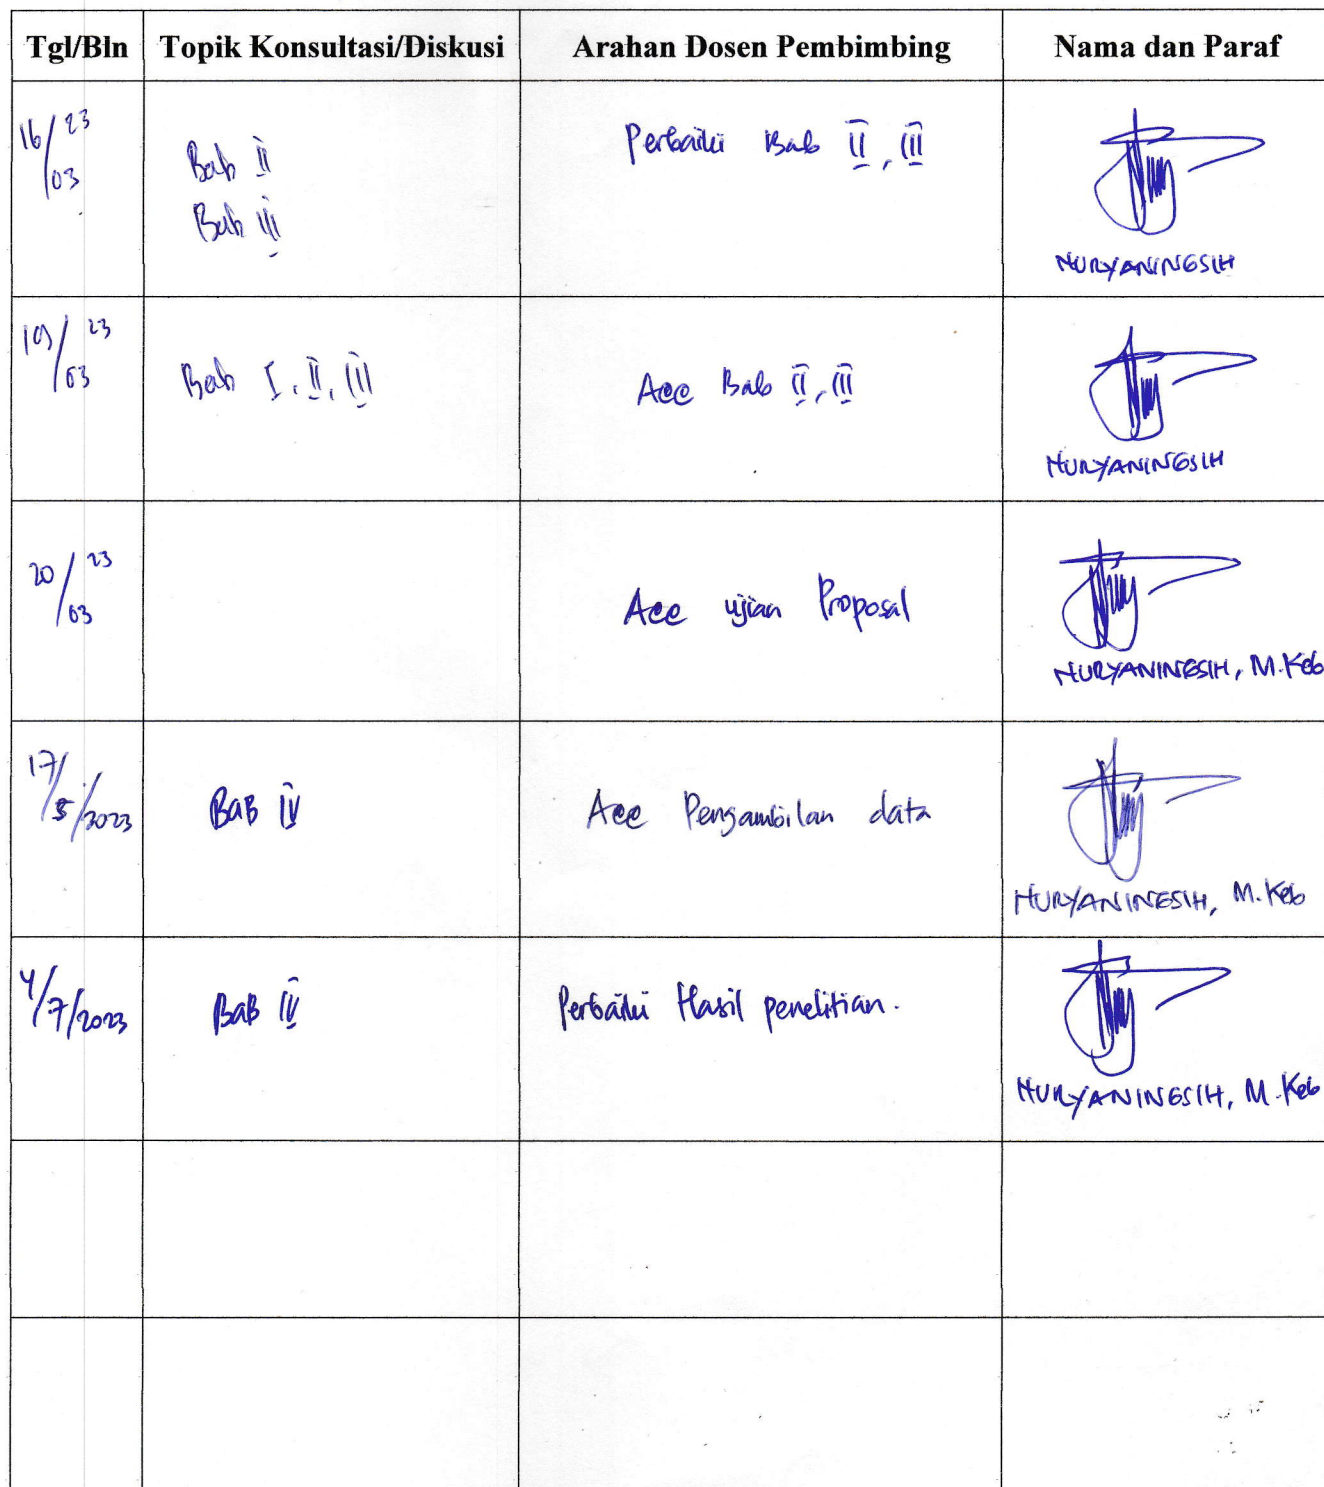 Tgl/Bln Topik Konsultasi/Diskusi Arahan Dosen Pembimbing Nama dan Paraf
16/03 23 Bab II Perbaiki Bab II, III
Bab III
NURYANINGSIH
19/03 23 Bab I, II, III Acc Bab II, III
NURYANINGSIH
20/03 23 Acc ujian Proposal
NURYANINGSIH, M.Keb
17/5/2023 BAB IV Acc Pengambilan data
NURYANINGSIH, M.Keb
4/7/2023 BAB IV Perbaiki Hasil penelitian.
NURYANINGSIH, M.Keb